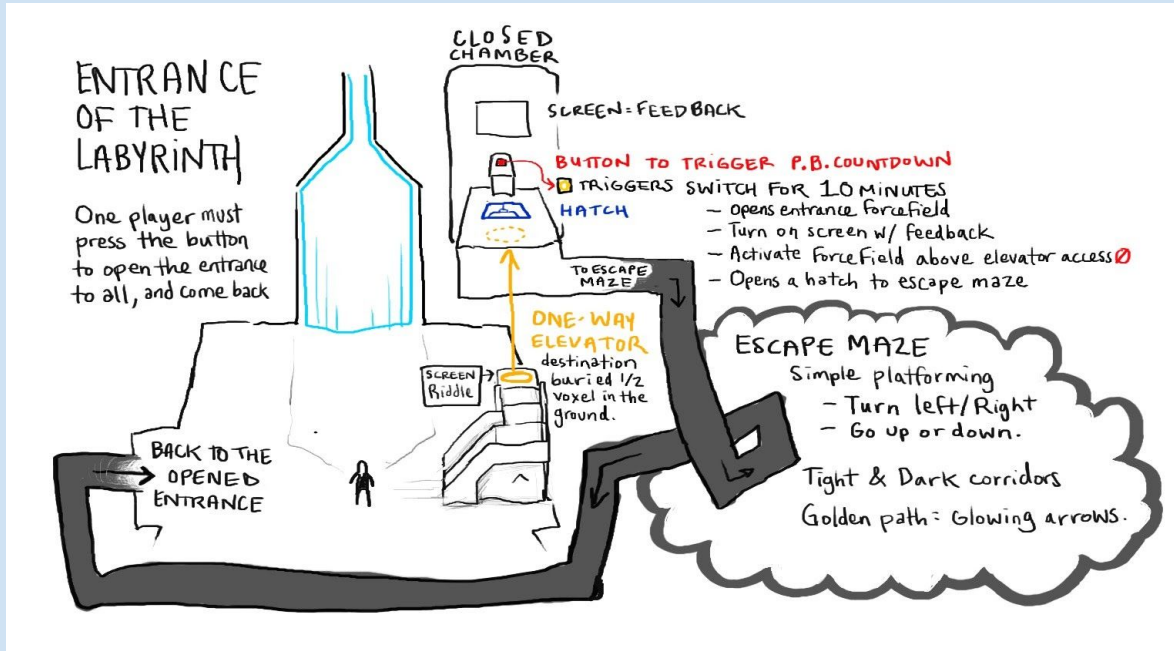 ENTRANCE
OF THE
LABYRINTH
One player must
press the button
to open the entrance
to all, and come back
CLOSED
CHAMBER
SCREEN = FEEDBACK
BUTTON TO TRIGGER P.B. COUNTDOWN
TRIGGERS SWITCH FOR 10 MINUTES
- Opens entrance forcefield
- Turn on screen w/ feedback
- Activate ForceField above elevator access
- Opens a hatch to escape maze
HATCH
TO ESCAPE
MAZE
ONE-WAY
ELEVATOR
destination
buried 1/2
voxel in the
ground.
SCREEN
Riddle
BACK TO THE
OPENED
ENTRANCE
ESCAPE MAZE
Simple platforming
- Turn left/Right
- Go up or down.
Tight & Dark corridors
Golden path = Glowing arrows.